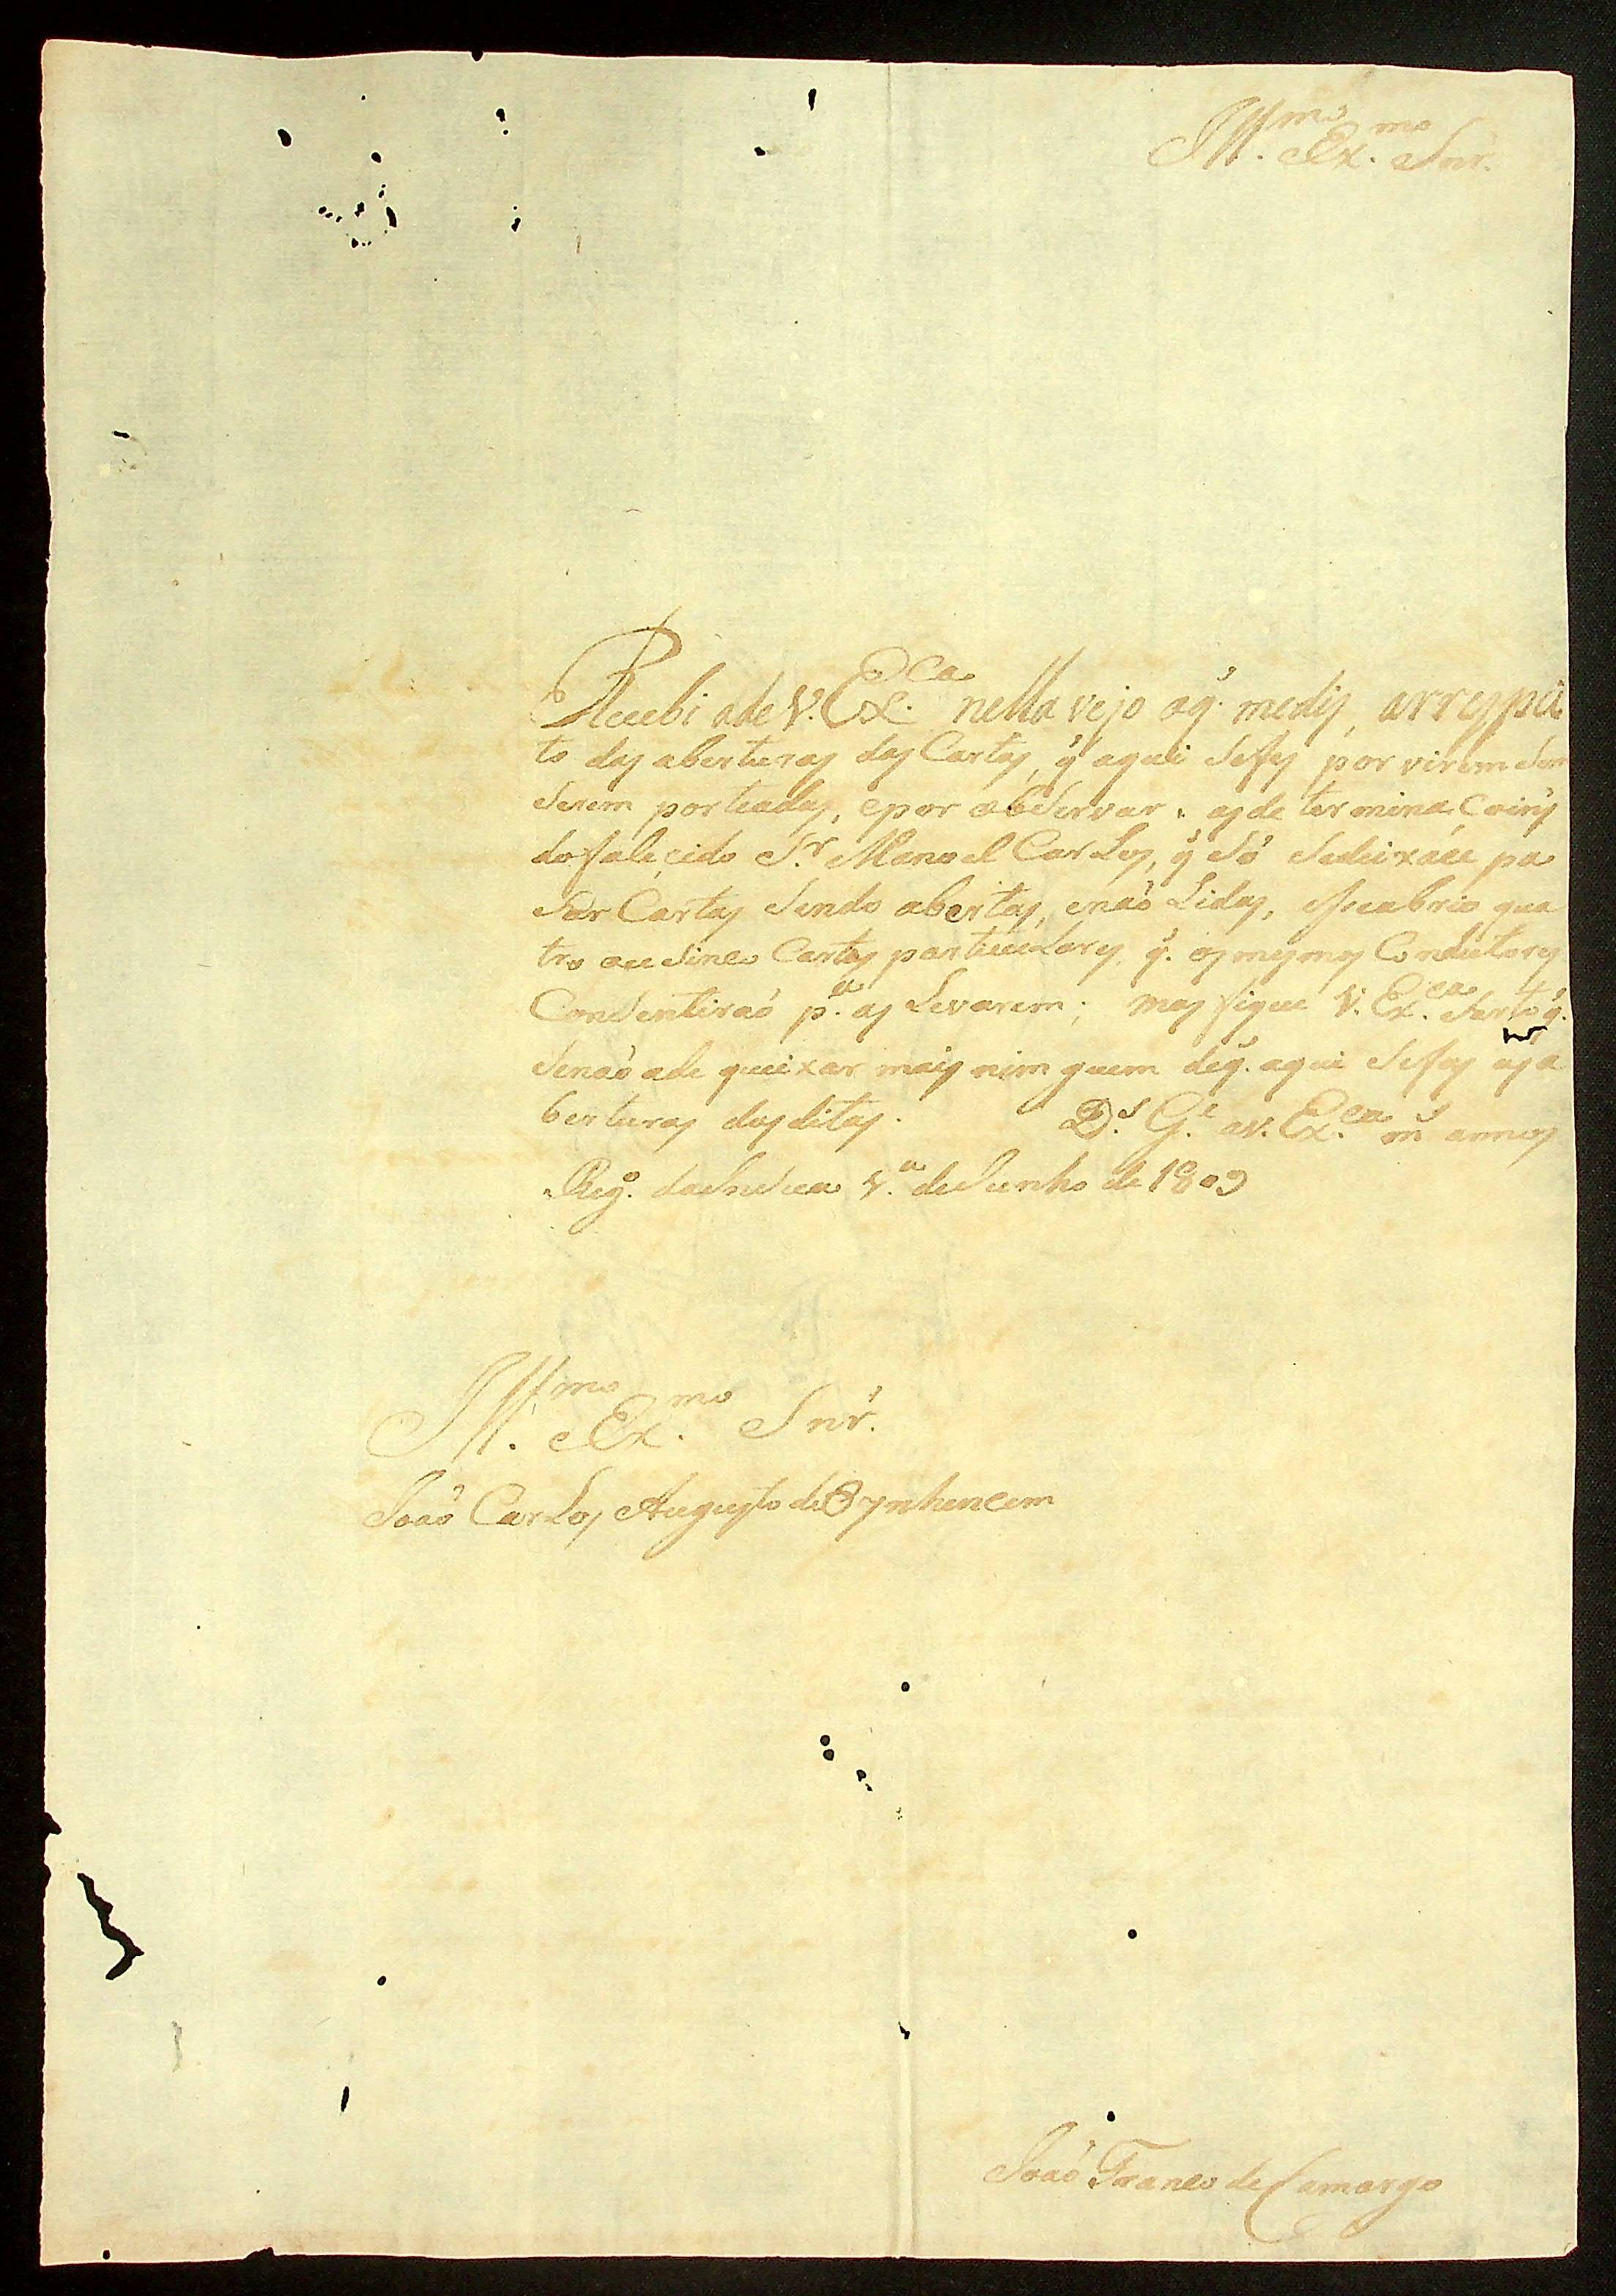 Ill.mo Ex.mo Snr.
Recebi a de V. Ex.ca nella vejo oq̃. medis, arrespei
to das aberturas das Cartas, q̃ aqui sefas por virem sem
serem porteadas, epor observar as de termina coins
do falecido S.r Manoel Carlos, q̃ só sedeixáce pa
sar Cartas sendo abertas, enaó Lidas, esseabrio qua
tro ou sinco Cartas particulares, q̃. os mesmos Condutores
Consentiraó p.a as Levarem; mas fique V. Ex.ca serto q̃.
senaó ade queixar mais nim guem deq̃. aqui sefas as a
berturas das ditas. D.s G.e a V. Ex.ca m.s annos
Reg.o 	de Junho de 1809
Ill.mo Ex.mo Snr.
Joaó Carlos Augusto de Oynhencem
Joaó Franco de Camargo